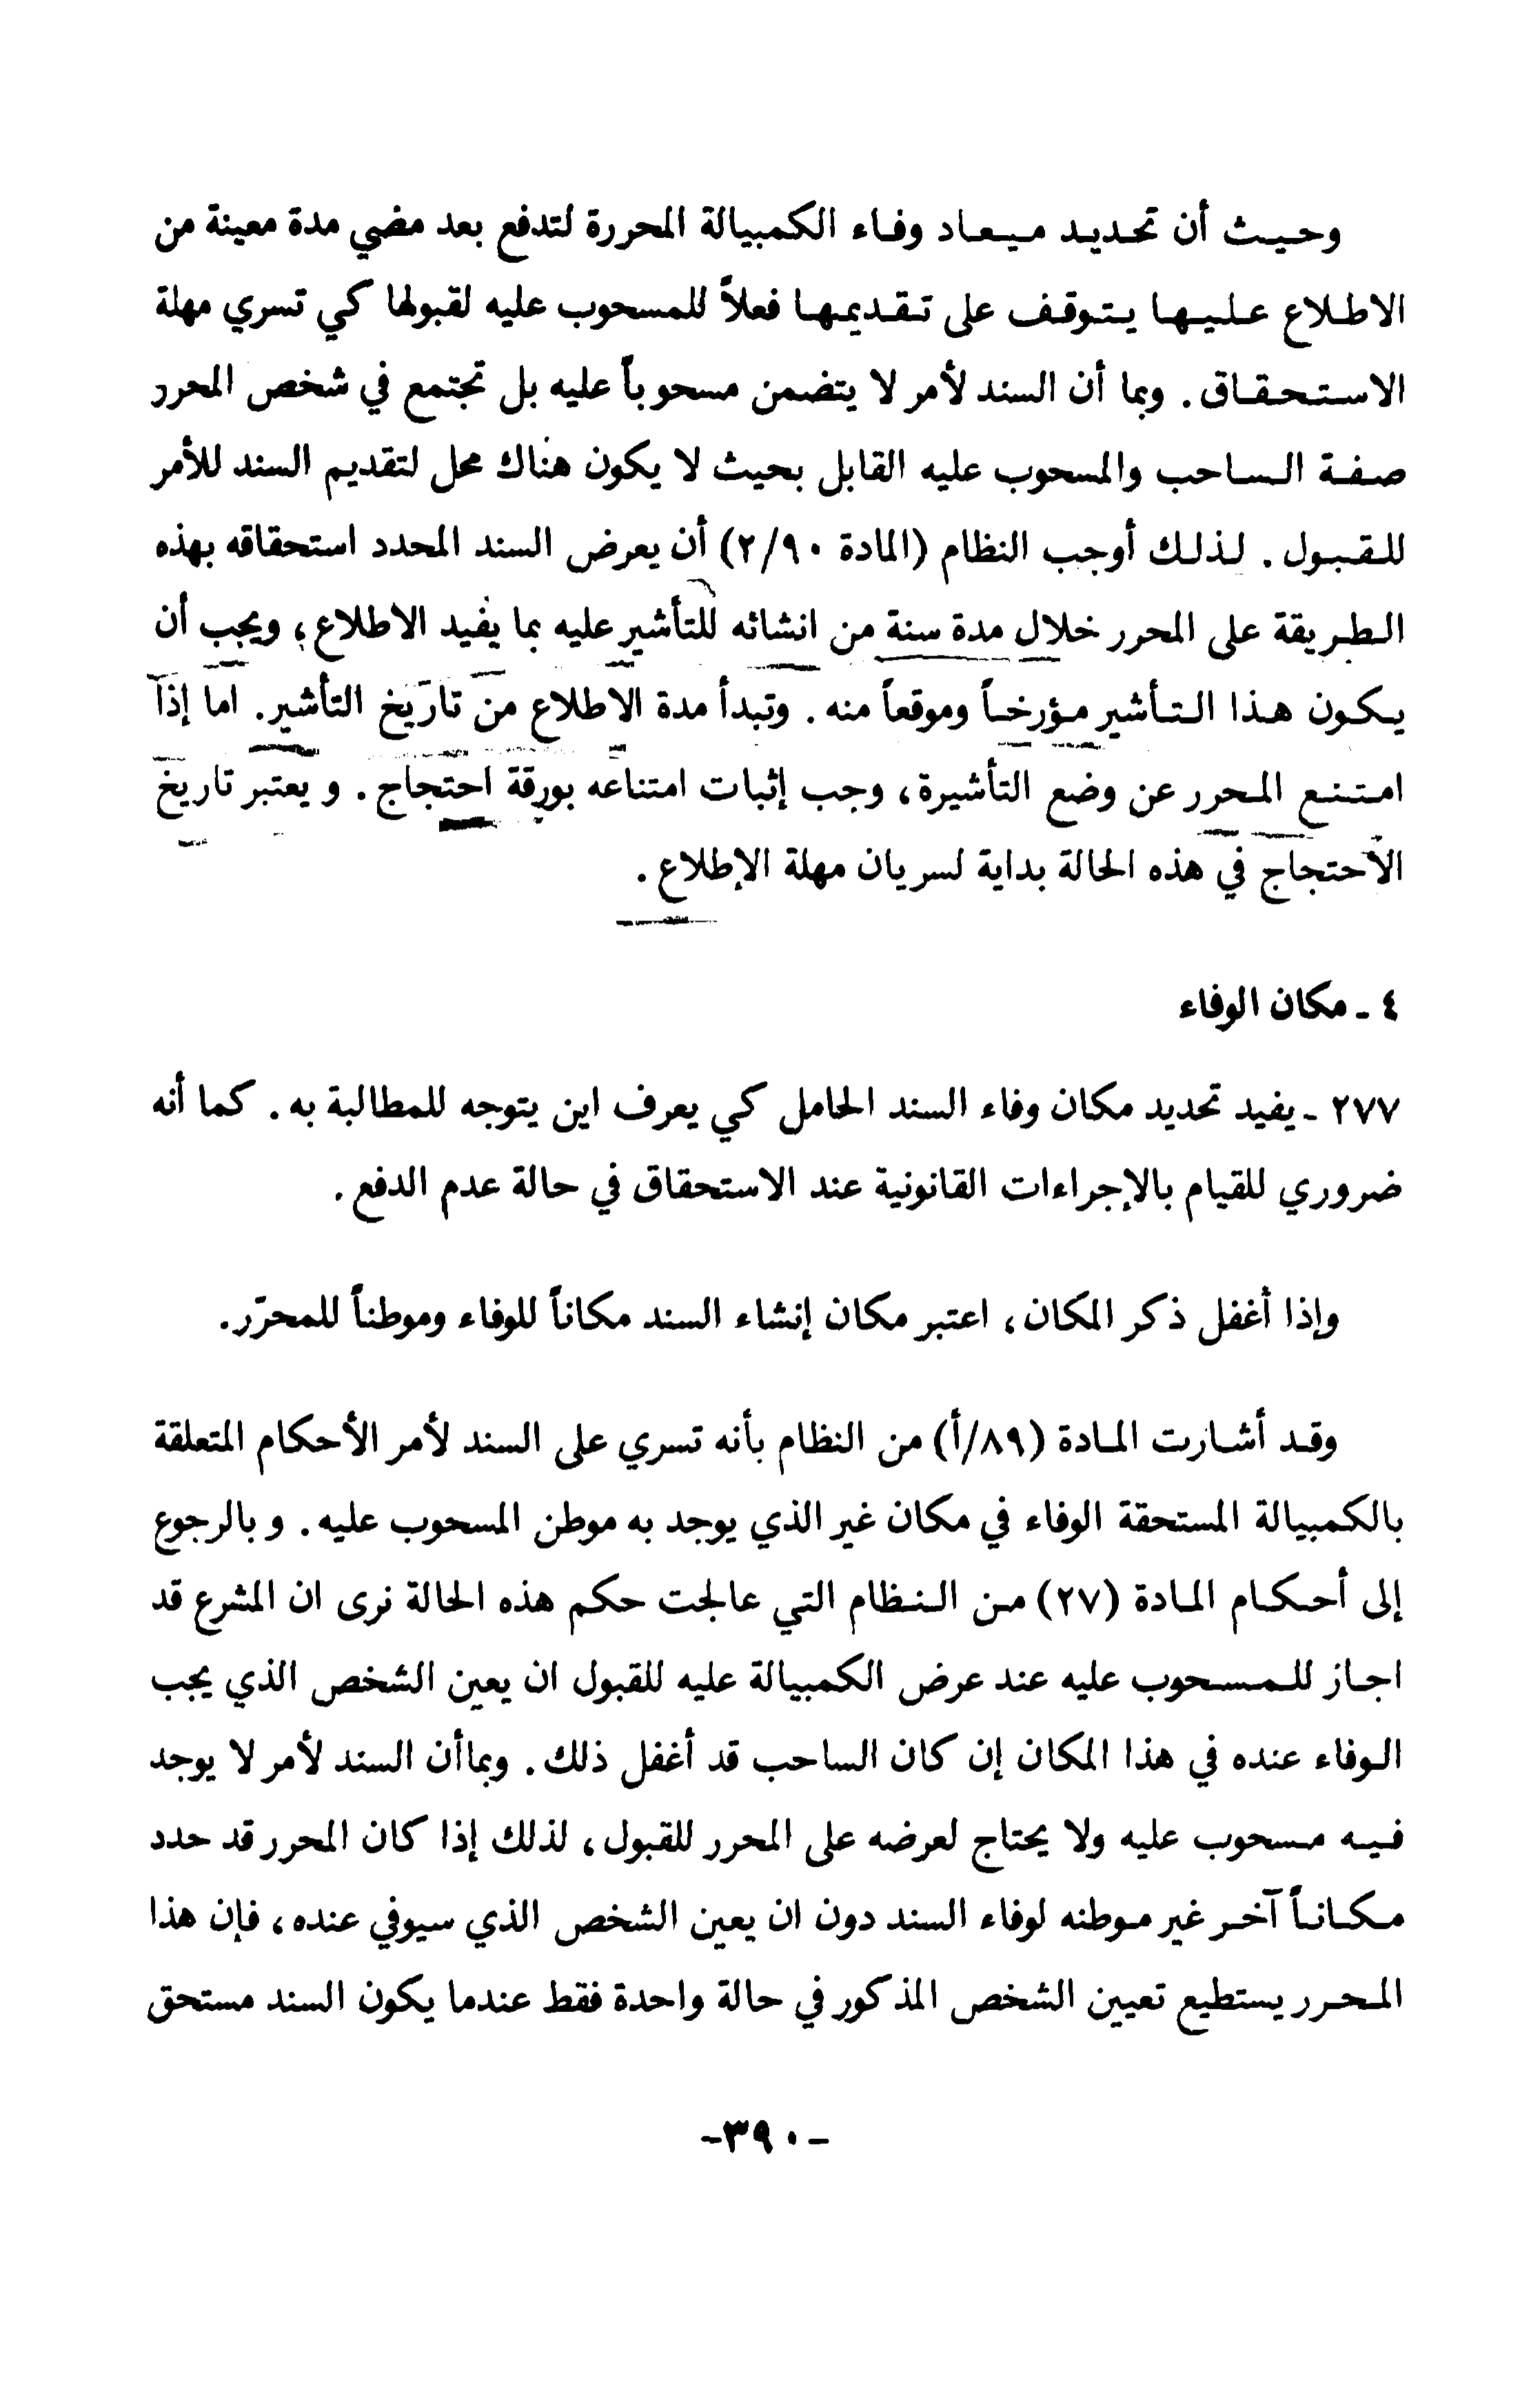 وحيث أن تحديد ميعاد وفاء الكمبيالة المحررة لتدفع بعد مضي مدة معينة من
الاطلاع عليها يتوقف على تقديمها فعلاً للمسحوب عليه لقبولها كي تسري مهلة
الاستحقاق. وبما أن السند لأمر لا يتضمن مسحوباً عليه بل تجتمع في شخص المحرر
صفة الساحب والمسحوب عليه القابل بحيث لا يكون هناك محل لتقديم السند للأمر
للقبول. لذلك أوجب النظام (المادة ٢/٩٠) أن يعرض السند المحدد استحقاقه بهذه
الطريقة على المحرر خلال مدة سنة من انشائه للتأشير عليه بما يفيد الاطلاع، ويجب أن
يكون هذا التأشير مؤرخاً وموقعاً منه. وتبدأ مدة الاطلاع من تاريخ التأشير. اما إذا
امتنع المحرر عن وضع التأشيرة، وجب إثبات امتناعه بورقة احتجاج. ويعتبر تاريخ
الاحتجاج في هذه الحالة بداية لسريان مهلة الإطلاع.
٤ ـ مكان الوفاء
٢٧٧ ـ يفيد تحديد مكان وفاء السند الحامل كي يعرف اين يتوجه للمطالبة به. كما أنه
ضروري للقيام بالإجراءات القانونية عند الاستحقاق في حالة عدم الدفع.
وإذا أغفل ذكر المكان، اعتبر مكان إنشاء السند مكاناً للوفاء وموطناً للمحرّر.
وقد أشارت المادة (٨٩/أ) من النظام بأنه تسري على السند لأمر الأحكام المتعلقة
بالكمبيالة المستحقة الوفاء في مكان غير الذي يوجد به موطن المسحوب عليه. وبالرجوع
إلى أحكام المادة (٢٧) من النظام التي عالجت حكم هذه الحالة نرى ان المشرع قد
اجاز للمسحوب عليه عند عرض الكمبيالة عليه للقبول ان يعين الشخص الذي يجب
الوفاء عنده في هذا المكان إن كان الساحب قد أغفل ذلك. وبماأن السند لأمر لا يوجد
فيه مسحوب عليه ولا يحتاج لعرضه على المحرر للقبول، لذلك إذا كان المحرر قد حدد
مكاناً آخر غير موطنه لوفاء السند دون ان يعين الشخص الذي سيوفي عنده، فإن هذا
المحرر يستطيع تعيين الشخص المذكور في حالة واحدة فقط عندما يكون السند مستحق
-٣٩٠-